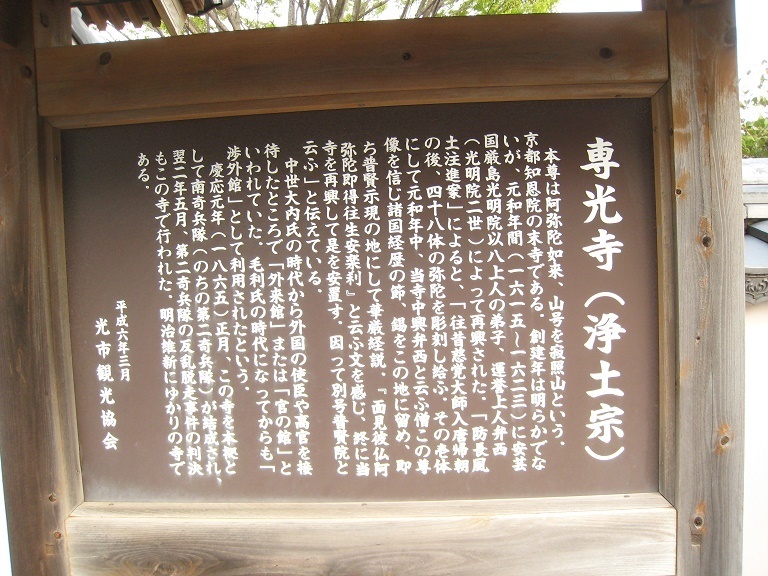 専光寺（浄土宗）
本尊は阿弥陀如来、山号を寂照山という。
京都知恩院の末寺である。創建年は明らかでな
いが、元和年間（一六一五～一六二三）に安芸
国厳島光明院以八上人の弟子、運誉上人弁西
（光明院二世）によって再興された。「防長風
土注進案」によると、「往昔慈覚大師入唐帰朝
の後、四十八体の弥陀を彫刻し給ふ、その壱体
にして元和年中、当寺中興弁西と云ふ僧この尊
像を信じ諸国経歴の節、錫をこの地に留め、即
ち普賢示現の地にして華厳経説、『面見彼仏阿
弥陀即得往生安楽刹』と云ふ文を感じ、終に当
寺を再興して是を安置す。因って別号普賢院と
云ふ」と伝えている。
中世大内氏の時代から外国の使臣や高官を接
待したところで「外来館」または「官の館」と
いわれていた。毛利氏の時代になってからも「
渉外館」として利用されたという。
慶応元年（一八六五）正月、この寺を本拠と
して南奇兵隊（のちの第二奇兵隊）が結成され、
翌二年五月、第二奇兵隊の反乱脱走事件の判決
もこの寺で行われた。明治維新にゆかりの寺で
ある。
平成六年三月
光市観光協会